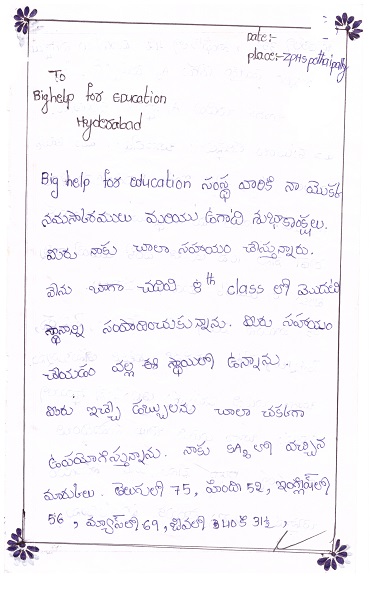 Date:-
place:- ZPHS pothaipally
To
Big help for Education
Hyderabad
Big help for education సంస్థ వారికి నా యొక్క
నమస్కారములు మరియు ఉగాది శుభాకాంక్షలు.
మీరు నాకు చాలా సహాయం చేస్తున్నారు.
నేను బాగా చదివి 8th class లో మొదటి
స్థానాన్ని సంపాదించుకున్నాను. మీరు సహాయం
చేయడం వల్ల ఈ స్థాయిలో ఉన్నాను.
మీరు ఇచ్చే డబ్బులను చాలా చక్కగా
ఉపయోగిస్తున్నాను. నాకు SA2 లో వచ్చిన
మార్కులు. తెలుగులో 75, హింది 52, ఇంగ్లీష్‌లో
56, మ్యాథ్స్‌లో 69, 40కి 31½,